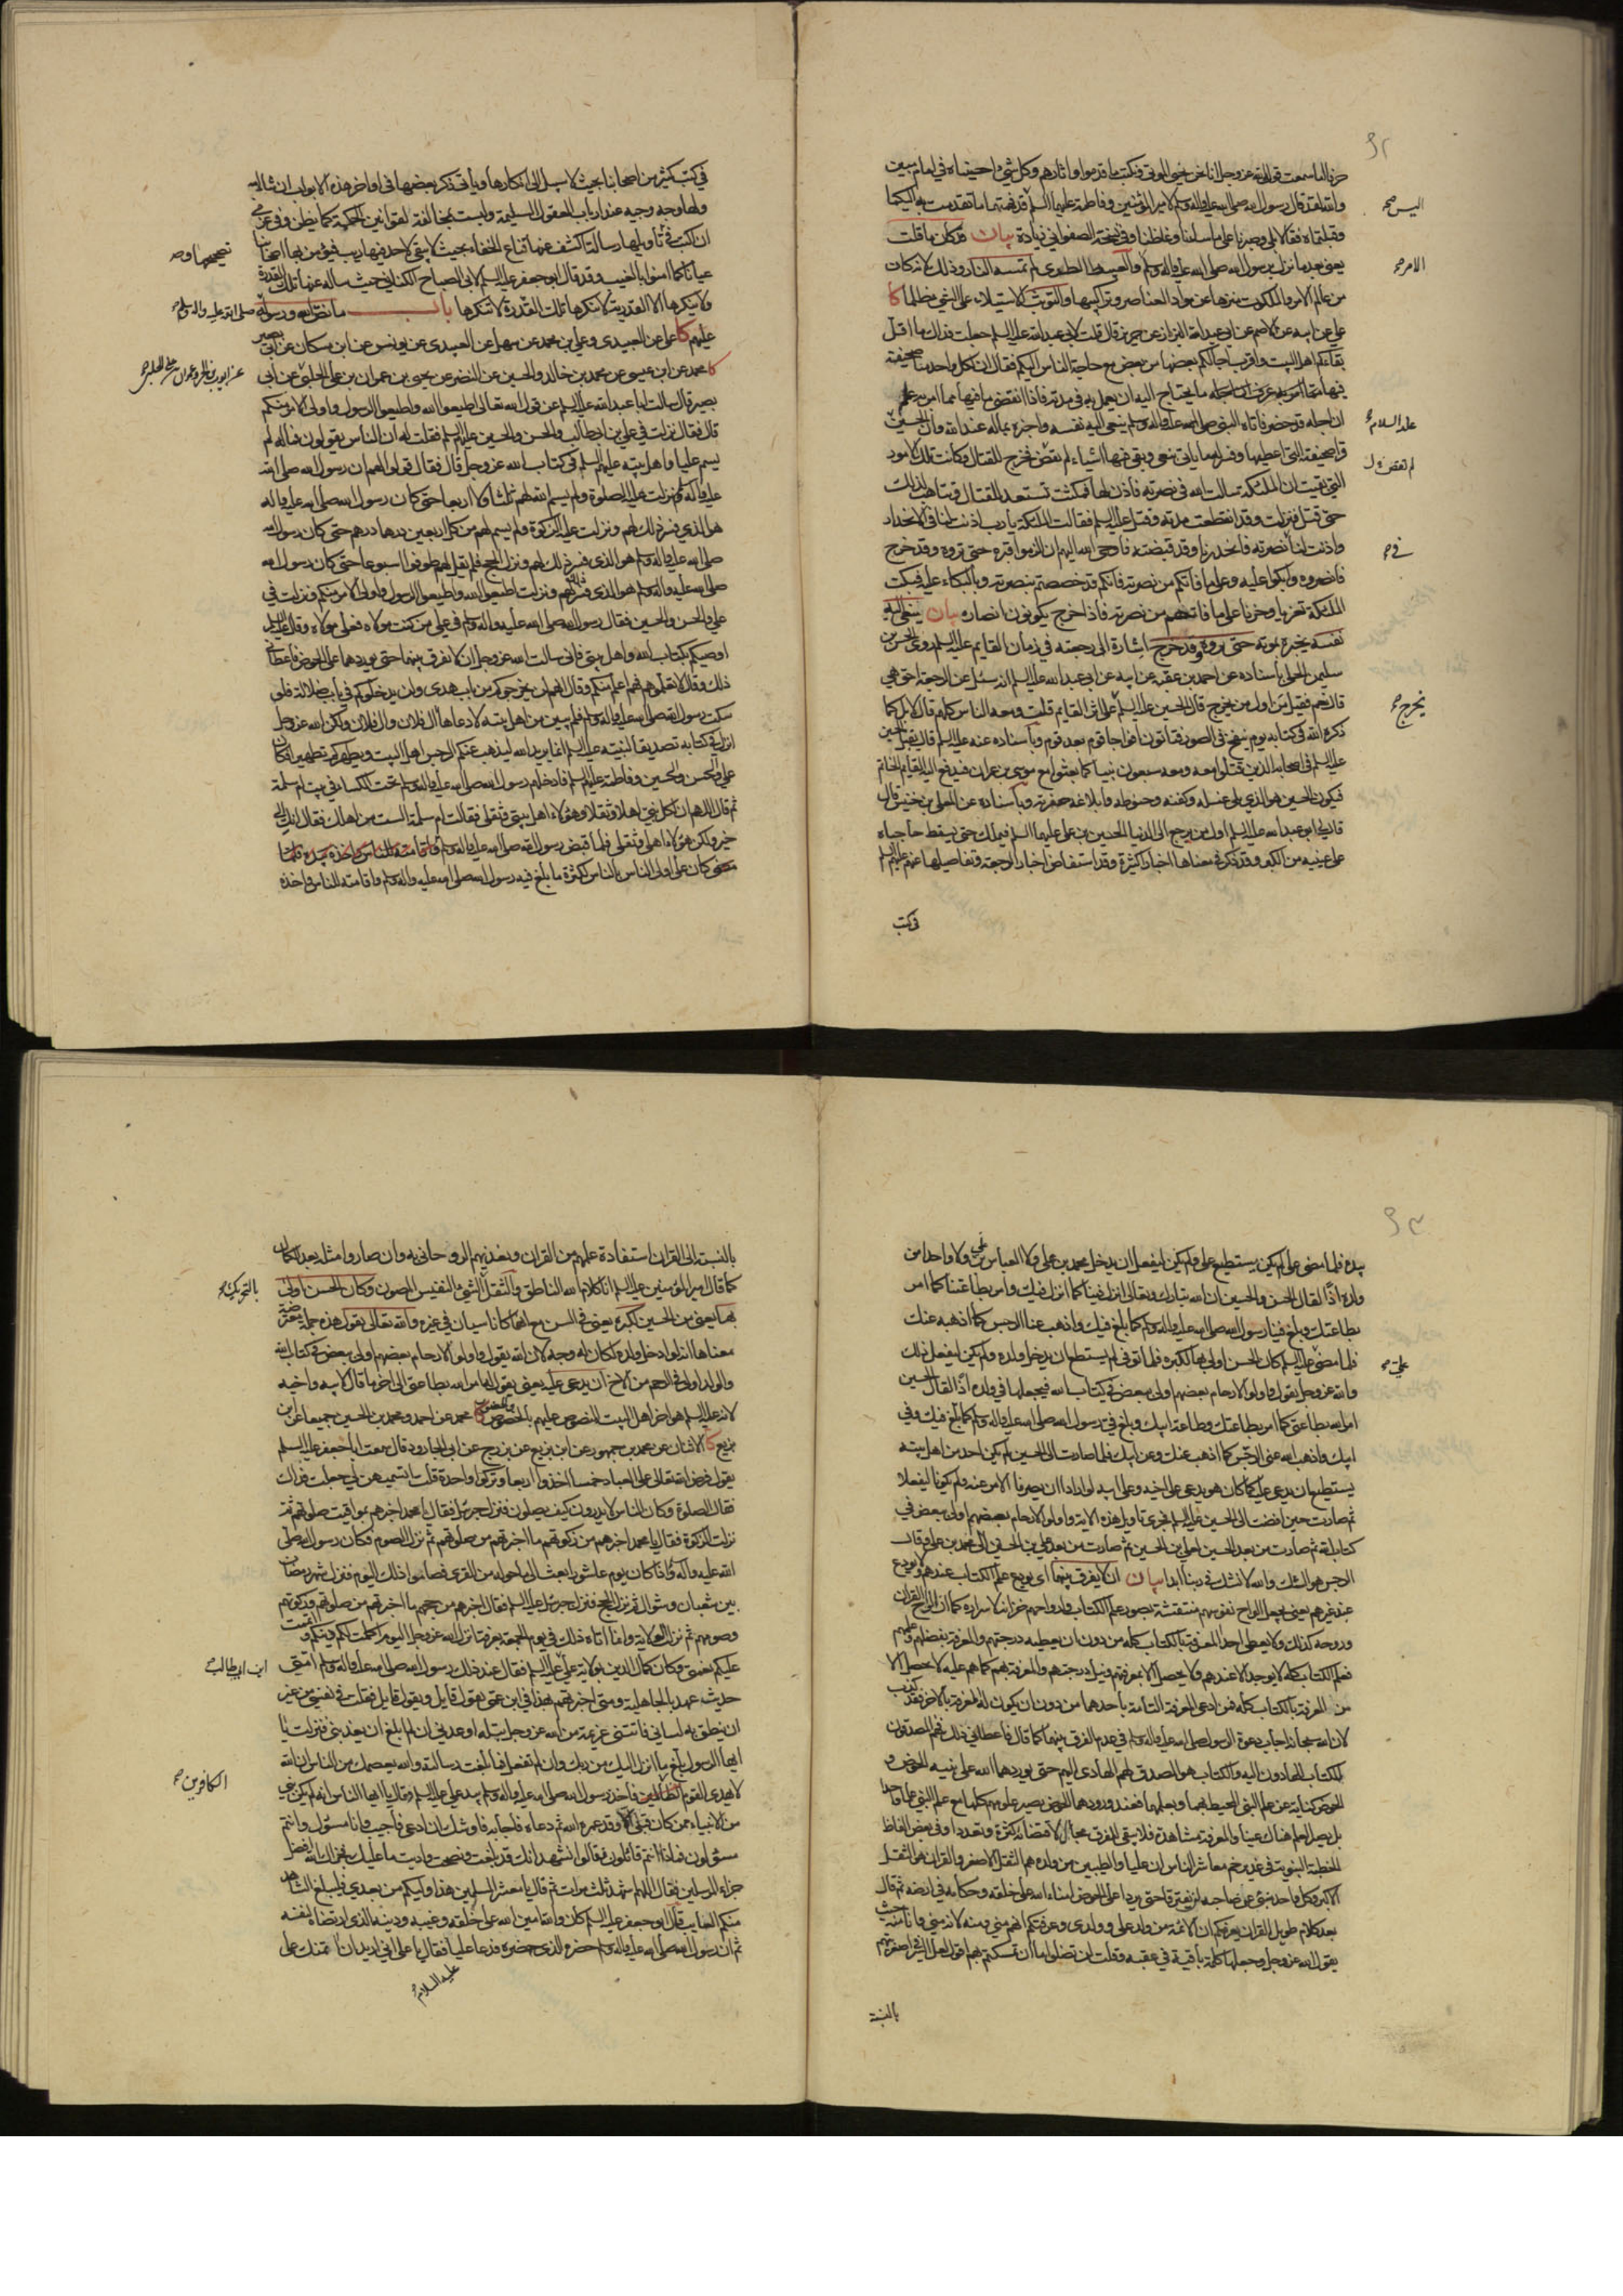 حرفا اما سمعت قول الله عز وجل انا نحن نحيي الموتى ونكتب ما قدموا واثارهم وكل شيء احصيناه في امام مبين
والله لقد قال رسول الله صلى الله عليه واله وسلم لامير المؤمنين وفاطمة عليهما السلم قد فهمتما ما تقدمت به اليكما
وقبلتماه فقالا بلى وصبرنا على ما ساءنا وغاظنا وفي نسخة الصفواني زيادة بيان
يعني بعد ما نزل برسول الله صلى الله عليه واله وسلم لم تمسسه النار وذلك لانه كان
من عالم الامر والملكوت منزها عن مواد العناصر وتراكيبها والتوثب الاستيلاء على الشيء ظلما كا
علي عن ابيه عن الاصم عن ابي عبد الله البزاز عن حريز قال قلت لابي عبد الله عليه السلم جعلت فداك ما اقل
بقاءكم اهل البيت واقرب اجالكم بعضها من بعض مع حاجة الناس اليكم فقال ان لكل واحد منا صحيفة
فيها ما يحتاج اليه ان يعمل به في مدته فاذا انقضى ما فيها مما امر به علم
ان اجله قد حضر فاتاه النبي صلى الله عليه واله وسلم ينعى اليه نفسه واخبره بماله عند الله وان الحسين
قرا صحيفته التي اعطيها وفسر له ما ياتي بنعي وبقي فيها اشياء لم تقض فخرج للقتال وكانت تلك الامور
التي بقيت ان الملئكة سالت الله في نصرته فاذن لها فمكثت تستعد للقتال وتتاهب لذلك
حتى قتل فنزلت وقد انقطعت مدته وقتل عليه السلم فقالت الملئكة يا رب اذنت لنا في الانحدار
واذنت لنا في نصرته فانحدرنا وقد قبضته فاوحى الله اليهم ان الزموا قبره حتى تروه وقد خرج
فانصروه وابكوا عليه وعلى ما فاتكم من نصرته فانكم قد خصصتم بنصرته وبالبكاء عليه فبكت
الملئكة تعزيا وحزنا على ما فاتهم من نصرته فاذا خرج يكونون انصاره بيان ينعى اليه
نفسه يخبره بموته حتى تروه وقد خرج اشارة الى رجعته في زمان القايم عليه السلم روى الحسن بن
سليمن الحلي باسناده عن احمد بن عقبه عن ابيه عن ابي عبد الله عليه السلم انه سئل عن الرجعة احق هي
قال نعم فقيل من اول من يخرج قال الحسين عليه السلم على اثر القايم قلت ومعه الناس كلهم قال لا بل كما
ذكره الله في كتابه يوم ينفخ في الصور فتاتون افواجا قوم بعد قوم وباسناده عنه عليه السلم قال يقبل الحسين
عليه السلم في اصحابه الذين قتلوا معه ومعه سبعون نبيا كما بعثوا مع موسى بن عمران فيدفع اليه القايم الخاتم
فيكون الحسين هو الذي يلي غسله وكفنه وحنوطه وباسناده عن المعلى بن خنيس قال
قال لي ابو عبد الله عليه السلم اول من يرجع الى الدنيا الحسين بن علي عليهما السلم فيملك حتى يسقط حاجباه
على عينيه من الكبر وقد ذكر في معناها اخبار كثيرة وقد استفاض اخبار الرجعة وتفاصيلها عنهم عليهم السلم
في كتب
الامر
عليه السلام
يخرج
في كتب كثير من اصحابنا بحيث لا سبيل الى انكارها وياتي ذكر بعضها في اواخر هذه الابواب ان شاء الله
ولها وجه وجيه عند ارباب العقول السليمة وليست بمخالفة لقوانين الحكمة كما يظن وفي عزمي
ان اكتب في تاويلها رسالة اكشف عنها قناع الخفاء بحيث لا يبقى لاحد فيها ريب
عيانا كما امنوا بالغيب وقد قال ابو جعفر عليه السلم لابي الصباح الكناني حيث ساله عنها تلك القدرة
ولا ينكرها الا القدرية لا تنكرها تلك القدرة لا تنكرها باب ما نص الله ورسوله صلى الله عليه واله وسلم
عليهم كا علي عن العبيدي وعلي بن محمد عن سهل عن العبيدي عن يونس عن ابن مسكان عن ابي بصير
كا محمد عن ابن عيسى عن محمد بن خالد والحسين عن النضر عن يحيى بن عمران بن علي الحلبي عن ابي
بصير قال سالت ابا عبد الله عليه السلم عن قول الله تعالى اطيعوا الله واطيعوا الرسول واولي الامر منكم
قال فقال نزلت في علي بن ابي طالب والحسن والحسين عليهم السلم فقلت له ان الناس يقولون فما له لم
يسم عليا واهل بيته عليهم السلم في كتاب الله عز وجل قال فقال قولوا لهم ان رسول الله صلى الله
عليه واله وسلم نزلت عليه الصلوة ولم يسم الله لهم ثلثا ولا اربعا حتى كان رسول الله صلى الله عليه واله
هو الذي فسر ذلك لهم ونزلت عليه الزكوة ولم يسم لهم من كل اربعين درهما درهم حتى كان رسول الله
صلى الله عليه واله وسلم هو الذي فسر ذلك لهم ونزل الحج فلم يقل لهم طوفوا اسبوعا حتى كان رسول الله
صلى الله عليه واله وسلم هو الذي فسر لهم ونزلت اطيعوا الله واطيعوا الرسول واولي الامر منكم ونزلت في
علي والحسن والحسين فقال رسول الله صلى الله عليه واله وسلم في علي من كنت مولاه فعلي مولاه وقال عليه السلم
اوصيكم بكتاب الله واهل بيتي فاني سالت الله عز وجل ان لا يفرق بينهما حتى يوردهما على الحوض فاعطاني
ذلك وقال لا تعلموهم فهم اعلم منكم وقال انهم لن يخرجوكم من باب هدى ولن يدخلوكم في باب ضلالة فلو
سكت رسول الله صلى الله عليه واله وسلم فلم يبين من اهل بيته لادعاها ال فلان وال فلان ولكن الله عز وجل
انزل في كتابه تصديقا لنبيه عليه السلم انما يريد الله ليذهب عنكم الرجس اهل البيت ويطهركم تطهيرا فكان
علي والحسن والحسين وفاطمة عليهم السلم فادخلهم رسول الله صلى الله عليه واله وسلم تحت الكساء في بيت ام سلمة
ثم قال اللهم ان لكل نبي اهلا وثقلا وهؤلاء اهل بيتي وثقلي فقالت ام سلمة الست من اهلك فقال انك الى
خير ولكن هؤلاء اهلي وثقلي فلما قبض رسول الله صلى الله عليه واله وسلم
كان علي اولى الناس بالناس لكثرة ما بلغ فيه رسول الله صلى الله عليه واله وسلم واقامته للناس واخذه
بيده فلما مضى علي لم يكن يستطيع علي ولم يكن ليفعل ان يدخل محمد بن علي ولا العباس بن علي ولا واحدا من
ولده اذا لقال الحسن والحسين ان الله تبارك وتعالى انزل فينا كما انزل فيك وامر بطاعتنا كما امر
بطاعتك وبلغ فينا رسول الله صلى الله عليه واله وسلم كما بلغ فيك واذهب عنا الرجس كما اذهبه عنك
فلما مضى عليه السلم كان الحسن اولى بها لكبره فلما توفي لم يستطع ان يدخل ولده ولم يكن ليفعل ذلك
والله عز وجل يقول واولوا الارحام بعضهم اولى ببعض في كتاب الله فيجعلها في ولده اذا لقال الحسين
امر الله بطاعتي كما امر بطاعتك وطاعة ابيك وبلغ في رسول الله صلى الله عليه واله وسلم كما بلغ فيك وفي
ابيك واذهب الله عني الرجس كما اذهب عنك وعن ابيك فلما صارت الى الحسين لم يكن احد من اهل بيته
يستطيع ان يدعي عليه كما كان هو يدعي على اخيه وعلى ابيه لو ارادا ان يصرفا الامر عنه ولم يكونا ليفعلا
ثم صارت حين افضت الى الحسين عليه السلم فجرى تاويل هذه الاية واولوا الارحام بعضهم اولى ببعض في
كتاب الله ثم صارت من بعد الحسين لعلي بن الحسين ثم صارت من بعد علي بن الحسين الى محمد بن علي وقال
الرجس هو الشك والله لا نشك في ربنا ابدا بيان ان لا يفرق بينهما اي يودع علم الكتاب عندهم
عند غيرهم يعني يجعل الواح نفوسهم منتقشة بصور علم الكتاب وارواحهم خزائن لاسراره
وروحه كذلك ولا يعطي احدا المعرفة بالكتاب كله من دون ان يعطيه درجتهم والمعرفة بفضلهم
فعلم الكتاب كله لا يوجد الا عندهم ولا يحصل الا بمعرفتهم ونيل درجتهم والمعرفة بهم كما هم عليه لا يحصل الا
من المعرفة بالكتاب كله فمن ادعى المعرفة التامة باحدهما من دون ان يكون له المعرفة بالاخر فقد كذب
لان الله سبحانه اجاب دعوة الرسول صلى الله عليه واله وسلم في عدم الفرق بينهما كما قال فاعطاني ذلك فهم المصدقون
للكتاب الهادون اليه والكتاب هو المصدق لهم الهادي اليهم حتى يوردهما الله على نبيه الحوض و
الحوض كناية عن علم النبي المحيط بهما فعند ورودهما الحوض يصير علومهم كلها مع علم النبي علما واحدا
بل يصير العلم هناك عينا والمعرفة مشاهدة فلا يبقى للفرق مجال وفي بعض الفاظ
الخطبة النبوية في غدير خم معاشر الناس ان عليا والطيبين من ولده هم الثقل الاصغر والقران هو الثقل
الاكبر وكل واحد منبئ عن صاحبه لن يفترقا حتى يردا علي الحوض امناء الله على خلقه وحكامه في ارضه ثم قال
بعد كلام طويل القران يعرفكم ان الائمة من ولد علي وولدي وعرفتكم انهم مني ومنه لانه مني وانا منه حيث
يقول الله عز وجل وجعلها كلمة باقية في عقبه وقلت لن تضلوا ما ان تمسكتم بهم اقول
بالنسبة
بالنسبة الى القران استفادة علمهم من القران وتغذيهم الروحاني به وان صاروا مثله بعد الكمال
كما قال امير المؤمنين عليه السلم انا كلام الله الناطق والثقل الشيء النفيس المصون وكان الحسن اولى
بها يعني من الحسين لكبره يعني في السن مع انهما كانا سيان في غيره والله تعالى يقول هذه جملة معترضة
معناها انه لو ادخل ولده لكان له وجه لان الله يقول واولوا الارحام بعضهم اولى ببعض في كتاب الله
والولد اولى في الرحم من الاخ ان يدعي عليه يعني يقول امر الله بطاعتي الى اخر ما قال لابيه واخيه
لانه عليه السلم هو اخر اهل البيت المنصوص عليهم بالخصوص كا محمد عن احمد ومحمد بن الحسين جميعا عن ابن
بزيع كا الاثنان عن محمد بن جمهور عن ابن بزيع عن بزرج عن ابي الجارود قال سمعت ابا جعفر عليه السلم
يقول فرض الله تعالى على العباد خمسا اخذوا اربعا وتركوا واحدة قلت اتسميهن لي جعلت فداك
فقال الصلوة وكان الناس لا يدرون كيف يصلون فنزل جبرئيل فقال يا محمد اخبرهم بمواقيت صلوتهم ثم
نزلت الزكوة فقال يا محمد اخبرهم من زكوتهم ما اخبرتهم من صلوتهم ثم نزل الصوم فكان رسول الله صلى
الله عليه واله وسلم اذا كان يوم عاشورا بعث الى ما حوله من القرى فصاموا ذلك اليوم فنزل شهر رمضان
بين شعبان وشوال ثم نزل الحج فنزل جبرئيل عليه السلم فقال اخبرهم من حجهم ما اخبرتهم من صلوتهم وزكوتهم
وصومهم ثم نزلت الولاية وانما اتاه ذلك في يوم الجمعة بعرفة انزل الله عز وجل اليوم اكملت لكم دينكم واتممت
عليكم نعمتي وكان كمال الدين بولاية علي عليه السلم فقال عند ذلك رسول الله صلى الله عليه واله وسلم امتي
حديث عهد بالجاهلية ومتى اخبرتهم بهذا في ابن عمي يقول قايل ويقول قايل فقلت في نفسي من غير
ان ينطق به لساني فاتتني عزيمة من الله عز وجل بتلة اوعدني ان لم ابلغ ان يعذبني فنزلت يا
ايها الرسول بلغ ما انزل اليك من ربك وان لم تفعل فما بلغت رسالته والله يعصمك من الناس ان الله
لا يهدي القوم الظالمين فاخذ رسول الله صلى الله عليه واله وسلم بيد علي عليه السلم فقال يا ايها الناس انه لم يكن نبي
من الانبياء ممن كان قبلي الا وقد عمره الله ثم دعاه فاجابه فاوشك ان ادعى فاجيب وانا مسئول وانتم
مسئولون فماذا انتم قائلون فقالوا نشهد انك قد بلغت ونصحت واديت ما عليك فجزاك الله افضل
جزاء المرسلين فقال اللهم اشهد ثلث مرات ثم قال يا معشر المسلمين هذا وليكم من بعدي فليبلغ الشاهد
منكم الغايب قال ابو جعفر عليه السلم كان والله امين الله على خلقه وغيبه ودينه الذي ارتضاه لنفسه
ثم ان رسول الله صلى الله عليه واله وسلم حضره الذي حضره فدعا عليا فقال يا علي اني اريد ان ائتمنك على
عليه السلام
ابن ابي طالب
الكافرين